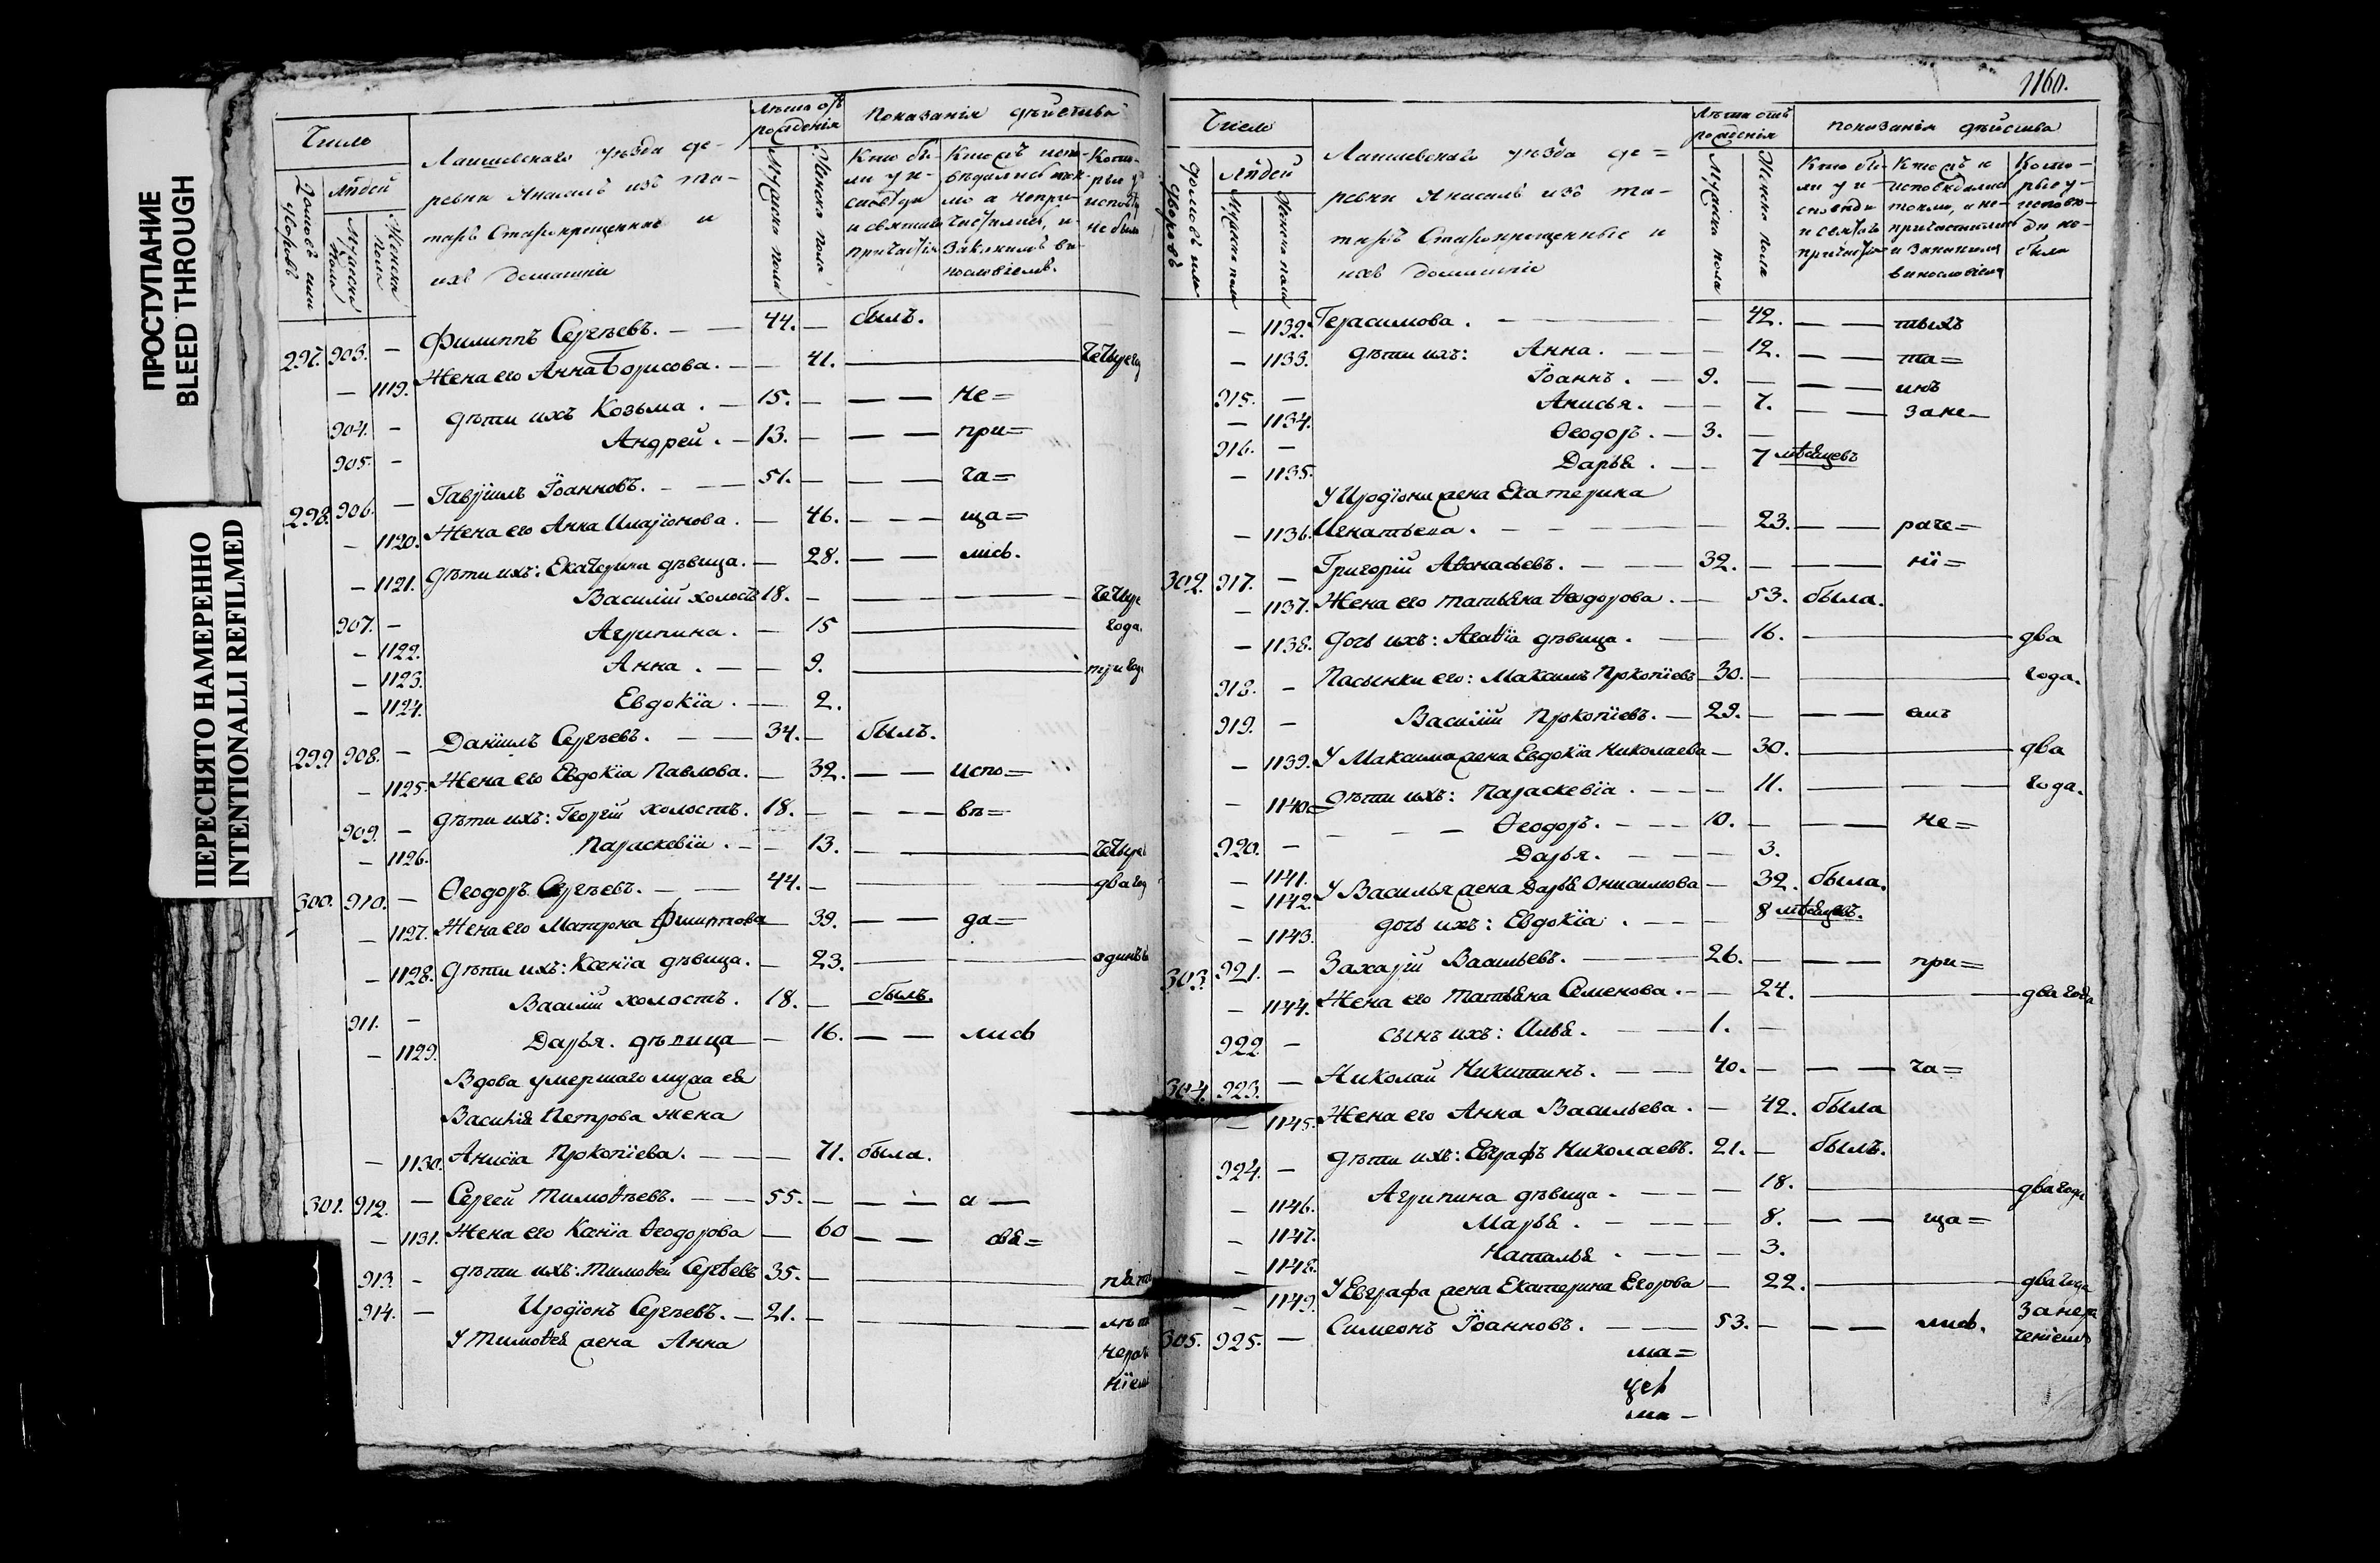 ПРОСТУПАНИЕ
BLEED THROUGH
ПЕРЕСНЯТО НАМЕРЕННО
INTENTIONALLI REFILMED
Число
Домовъ или дворовъ
Людей
Мужеска пола
Женска пола
Лаишевскаго уѣзда де-
ревни Янасалъ изъ та-
таръ Старокрещенные и
ихъ домашніи
Лѣта отъ рожденія
Мужеска пола
Женска пола
Показанія дѣйства
Кто бы-
ли у и-
сповѣди
и святаго
причастія
Кто исповѣдались ток-
мо а непри-
частились, и
за какимъ ви-
нословіемъ.
297. 903. — Филиппъ Сергѣевъ. — — 44. — былъ.
— 1119. Жена его Анна Борисова. — — 41. — четыре
904. — дѣти ихъ Козьма. — 15. — — — не=
905. — Андрей. — 13. — — — при=
298. 906. — Гавріилъ Іоанновъ. — — 51. — — — ча=
— 1120. Жена его Анна Иларіонова. — 46. — — — ща=
— 1121. дѣти ихъ: Екатерина дѣвица. — 28. — — лись.
907. — Василій холостъ 18. — — — —
— 1122. Агрипина. — 15 — года.
— 1123. Анна. — — 9. — три
— 1124. Евдокіа. — 2.
299. 908. — Даніилъ Сергѣевъ. — — 34. — былъ.
— 1125. Жена его Евдокіа Павлова. — 32. — — испо=
909. — дѣти ихъ: Георгій холостъ. 18. — — — вѣ=
— 1126. Параскевіа. — — 13. — четыре
300. 910. — Ѳеодоръ Сергѣевъ. — — 44. — — два
— 1127. Жена его Матрона Филиппова — 39. — — да=
— 1128. дѣти ихъ: Ксеніа дѣвица. — 23. — — одинъ
911. — Василій холостъ. 18. — былъ.
— 1129. Дарья. дѣвица — 16. — — лись
Вдова умершаго мужа ея
Василія Петрова жена
— 1130. Анисіа Прокопіева. — — — 71. была.
301. 912. — Сергей Тимоѳѣевъ. — — 55. — — — а —
— 1131. Жена его Ксеніа Ѳеодорова — 60 — — свя=
913. — дѣти ихъ: Тимоѳей Сергѣевъ 35. —
914. — Иродіонъ Сергѣевъ. — 21. —
У Тимоѳея жена Анна
1160.
Число
Домовъ или дворовъ
Людей
Мужеска пола
Женска пола
Лаишевскаго уѣзда де=
ревни Янасалъ изъ та-
таръ Старокрещенные и
ихъ домашніи
Лѣта отъ рожденія
Мужеска пола
Женска пола
показанія дѣйства
Кто бы-
ли у и-
сповѣди
и святаго
причастія
исповѣдались
токмо, а не-
причастились
и за какимъ
винословіемъ
Кото-
рые у
исповѣ-
ди не-
были
— 1132. Герасимова. — — 42. — — тыхъ
— 1133. дѣти ихъ: Анна. — — — 12. — — та=
915. — Іоаннъ. — 9. — — — инъ
— 1134. Анисья. — — 7. — — зане-
916. — Ѳеодоръ. — 3. —
— 1135. Дарья. — — 7 мѣсяцевъ
У Иродіона жена Екатерина
— 1136. Игнатьева. — — — 23. — — раче=
302. 917. — Григорій Аѳонасьевъ. — — — 32. — — — ні=
— 1137. Жена его Татьяна Ѳеодорова. — 53. была.
— 1138. дочь ихъ: Агаѳіа дѣвица. — — 16. — два
918. — Пасынки его: Максимъ Прокопіевъ — 30. — — года.
919. — Василій Прокопіевъ. — 29. — — — емъ
— 1139. У Максима жена Евдокіа Николаева — 30. — два
— 1140. дѣти ихъ: Параскевіа. — — — 11. — — года.
920. — Ѳеодоръ. — — 10. — — — не=
— 1141. Дарья. — — — 3.
— 1142. У Василья жена Дарья Онисимова — 32. была.
— 1143. дочь ихъ: Евдокіа. — — — 8 мѣсяцевъ.
303. 921. — Захарій Васильевъ. — — — 26. — — — при=
— 1144. Жена его Татьяна Семенова. — — 24. — два года
922. — сынъ ихъ: Илья. — — — 1. —
304. 923. — Николай Никитинъ. — — — 40. — — — ча=
— 1145. Жена его Анна Васильева. — 42. была
924. — дѣти ихъ: Евграфъ Николаевъ. 21. — былъ.
— 1146. Агрипина дѣвица. — — — 18. — два года
— 1147. Марья. — — — 8. — — ща=
— 1148. Наталья. — — — 3.
— 1149. У Евграфа жена Екатерина Егорова — 22. — два года
305. 925. — Симеонъ Іоанновъ. — — 53. — — — лись. за нера
ченіемъ